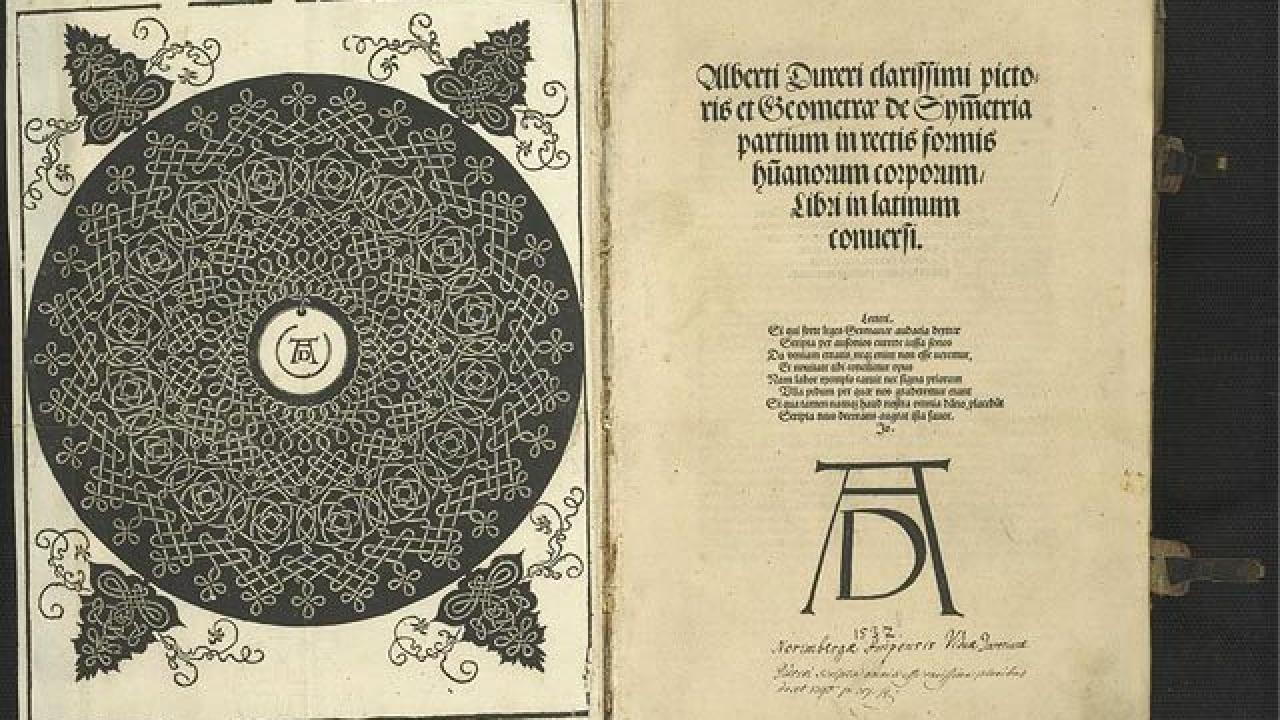 AD
Alberti Dureri clarissimi picto/
ris et Geometræ de Sym̄etria
partium in rectis formis
hūanorum corporum/
Libri in latinum
conuersi.
Lectori.
Si qui forte leges Germanæ audacia dextræ
Scripta per ausonios currere iussa sonos
Da veniam erratis neq; enim non esse
Et nouitate tibi concilietur opus
Nam labor exemplo caruit nec signa priorum
Vlla pedum per quæ nos graderemur erant
Si qua tamen namq; haud nostra omnia placebūt
Scripta tuus ista fauor.
Jo.
AD
1532
Norimbergæ Vidua
scripta omnia